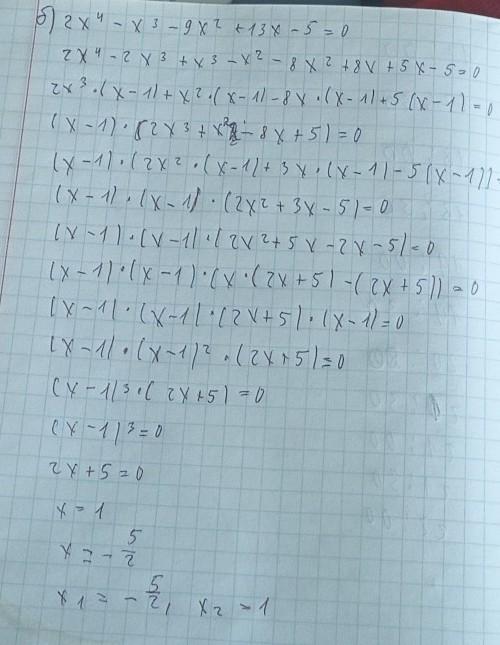 б) 2x⁴ - x³ - 9x² + 13x - 5 = 0
2x⁴ - 2x³ + x³ - x² - 8x² + 8x + 5x - 5 = 0
2x³ · (x - 1) + x² · (x - 1) - 8x · (x - 1) + 5(x - 1) = 0
(x - 1) · (2x³ + x² - 8x + 5) = 0
(x - 1) · (2x² · (x - 1) + 3x · (x - 1) - 5(x - 1))
(x - 1) · (x - 1) · (2x² + 3x - 5) = 0
(x - 1) · (x - 1) · (2x² + 5x - 2x - 5) = 0
(x - 1) · (x - 1) · (x · (2x + 5) - (2x + 5)) = 0
(x - 1) · (x - 1) · (2x + 5) · (x - 1) = 0
(x - 1) · (x - 1)² · (2x + 5) = 0
(x - 1)³ · (2x + 5) = 0
(x - 1)³ = 0
2x + 5 = 0
x = 1
x = - 5/2
x1 = - 5/2, x2 = 1